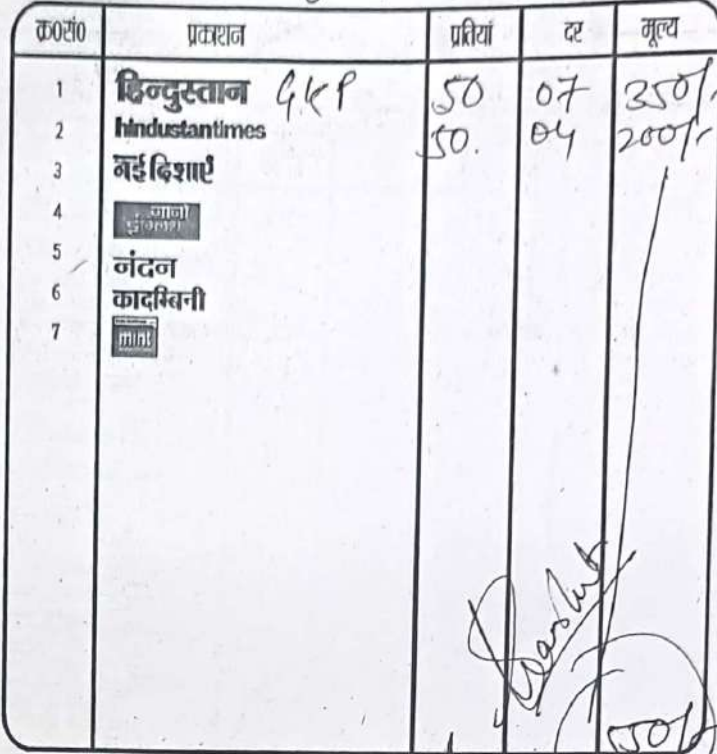 क्र०सं० प्रकाशन प्रतियां दर मूल्य
1 हिन्दुस्तान GKP 50 07 350/-
2 hindustantimes 50. 04 200/-
3 नई दिशाएँ
4
5 नंदन
6 कादम्बिनी
7 mint
550/-